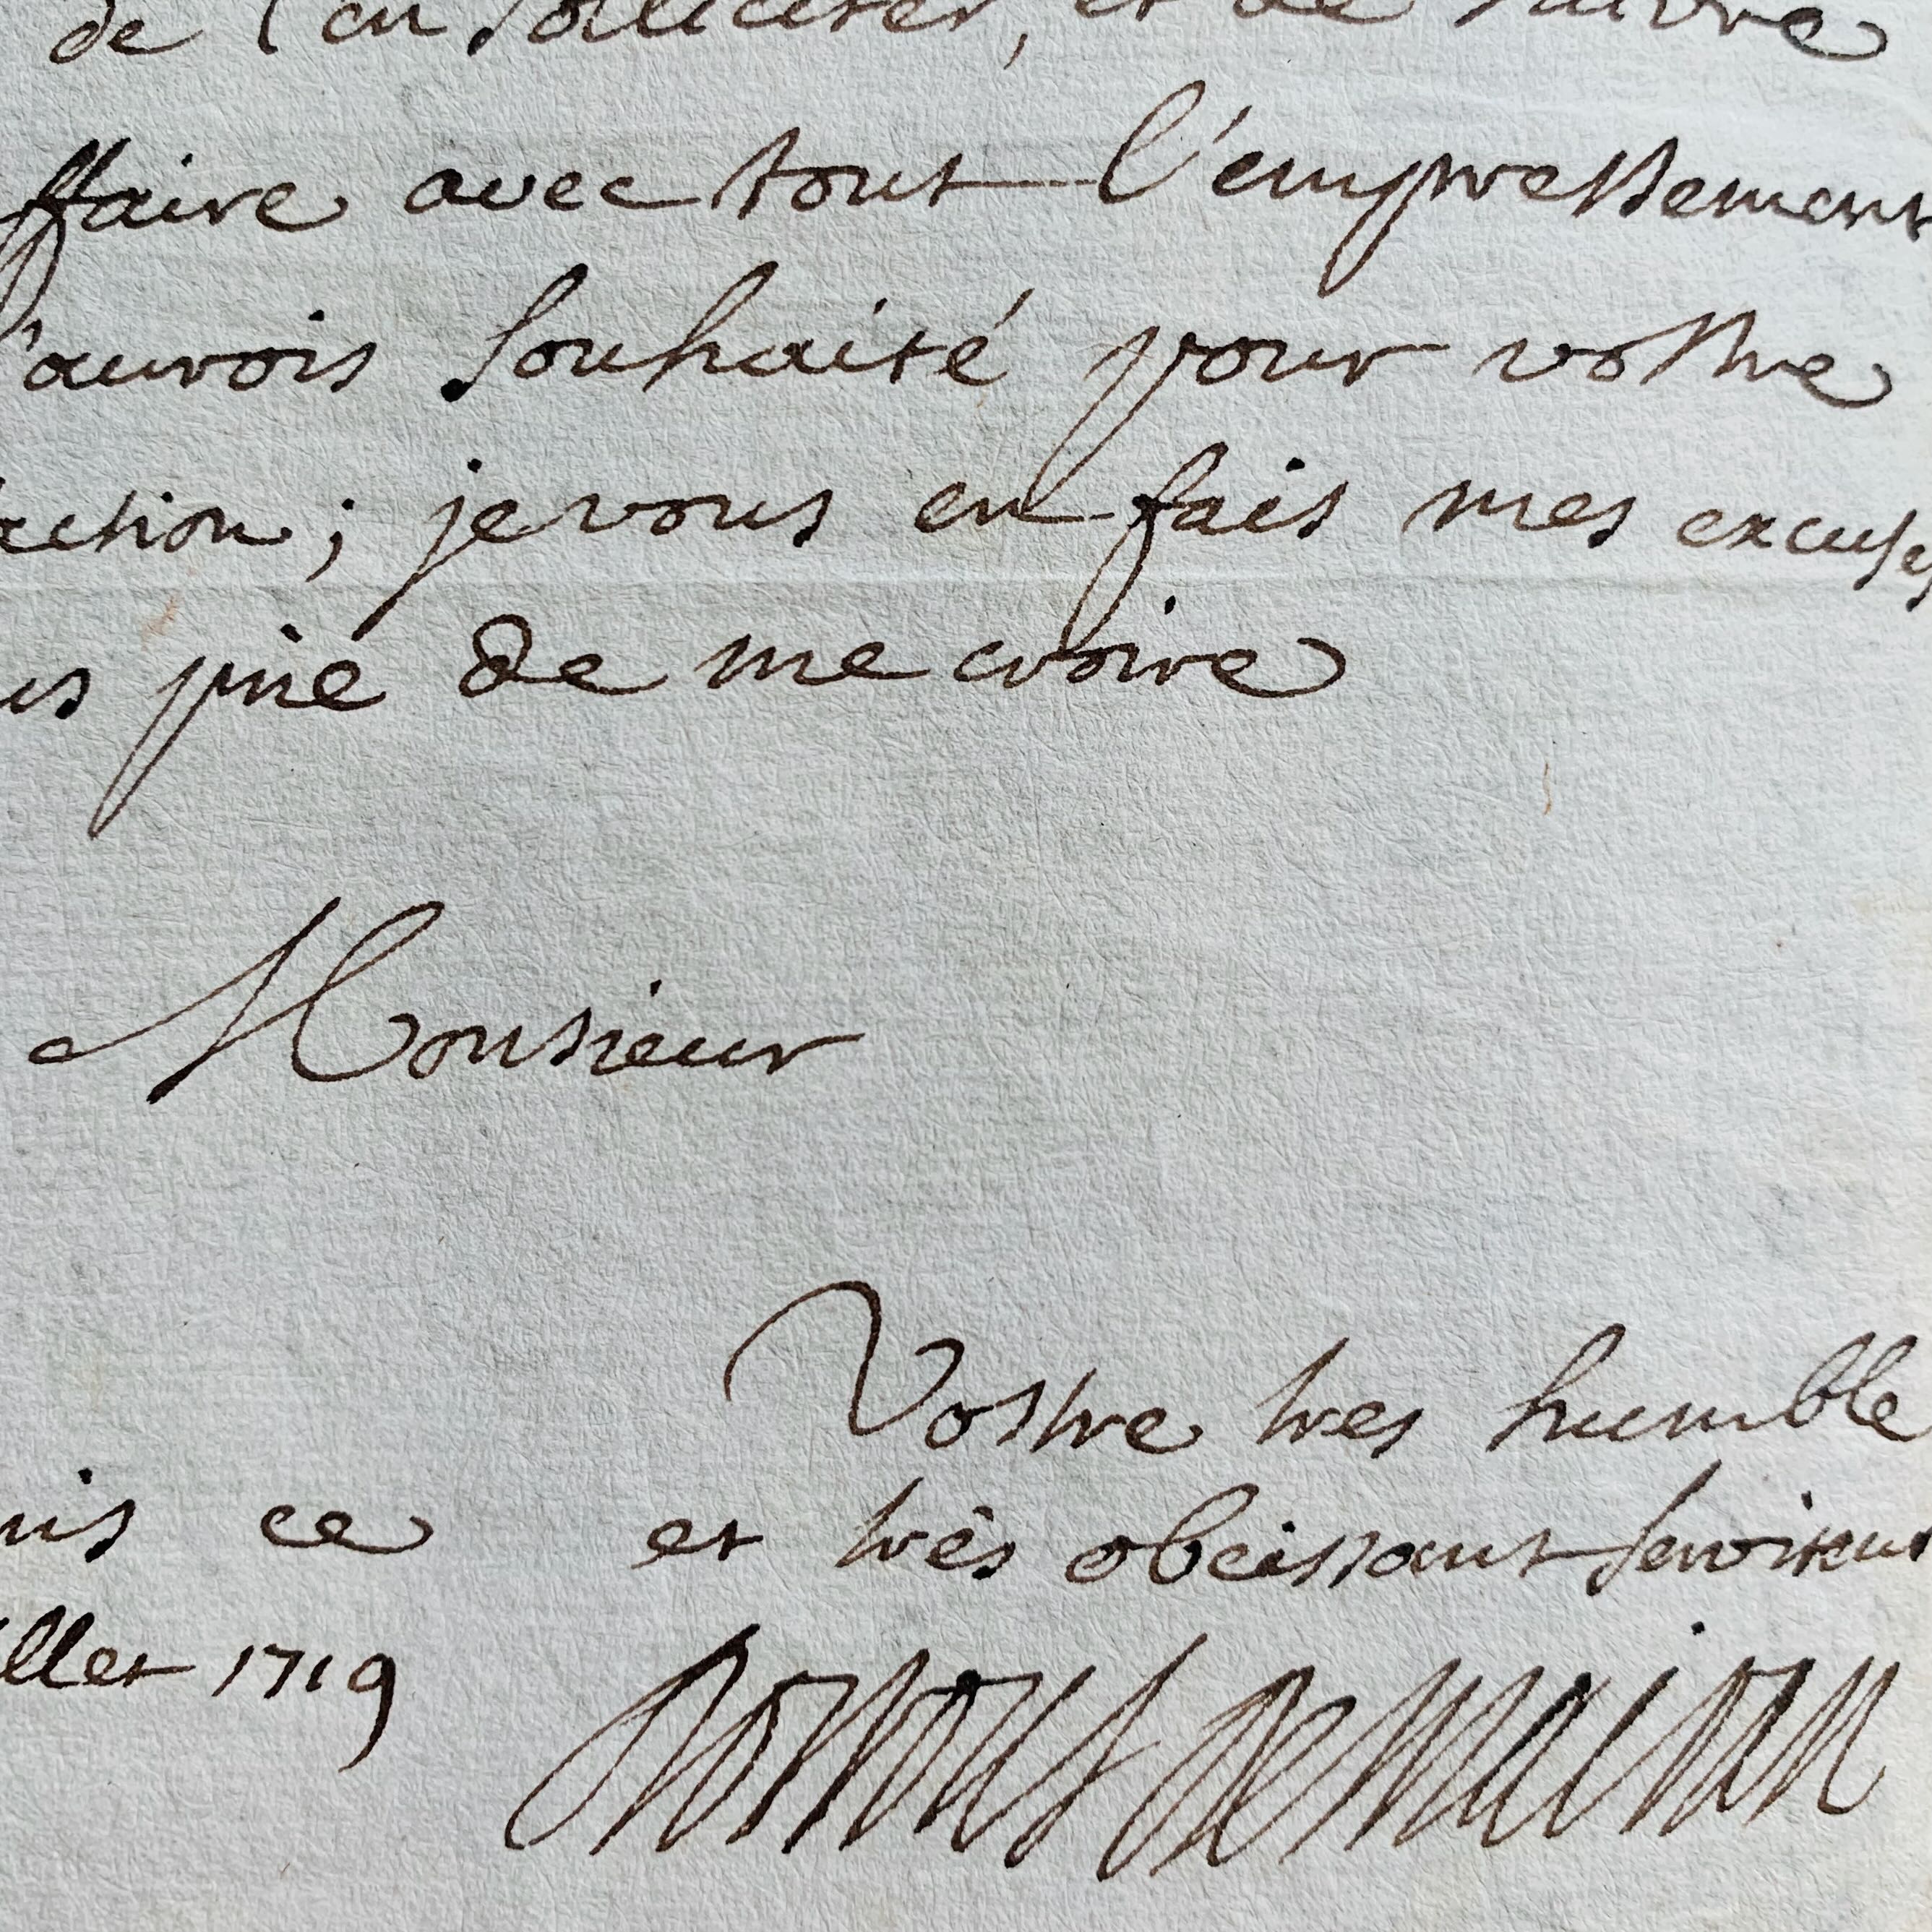 de l'en solliciter, et de suivre
ffaire avec tout l'empressement
'aurois souhaité pour vostre
action; je vous en fais mes excuses
us prie de me croire
Monsieur
Vostre tres humble
ris ce et très obeissant serviteur
illet 1719 Dortous de Mairan